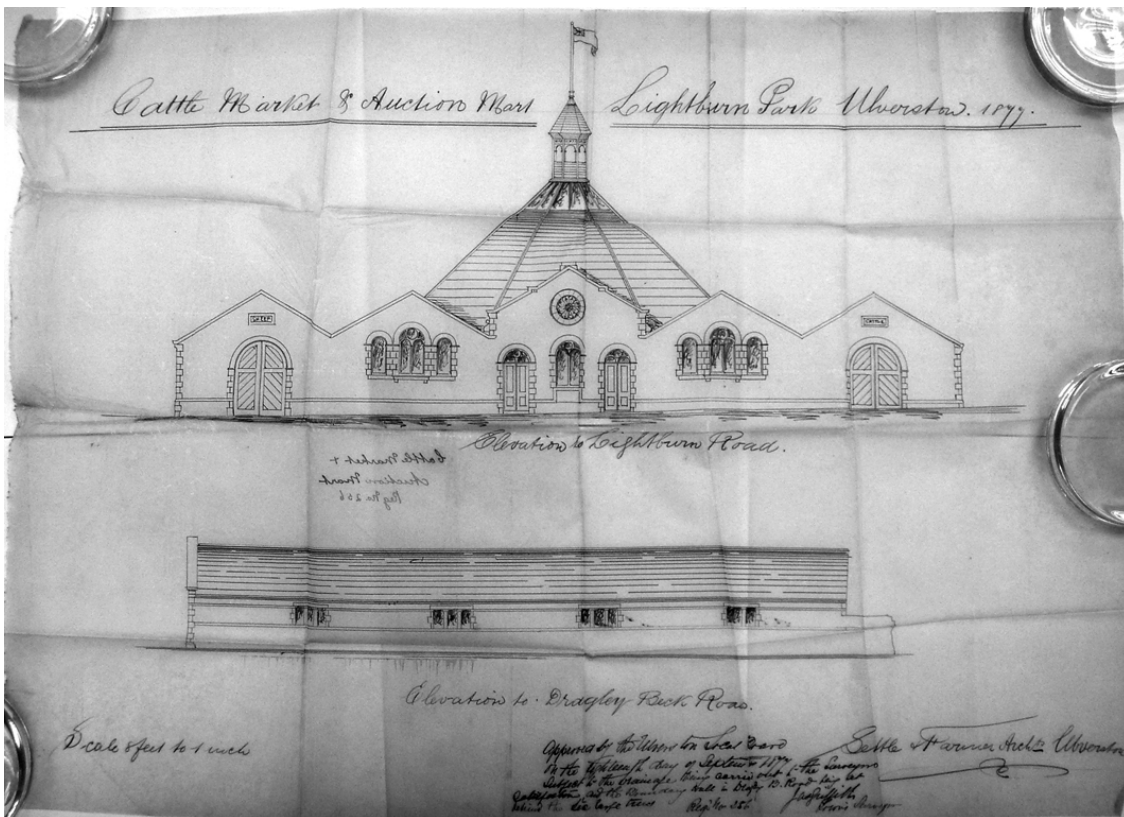 Cattle Market & Auction Mart Lightburn Park Ulverston. 1877.
SHEEP
CATTLE
Elevation to Lightburn Road.
Cattle Market +
Auction Mart
Reg No 256
Elevation to Dragley Beck Road.
Scale 8 feet to 1 inch
Approved by the Ulverston Local Board
on the Eighteenth day of September 1877
Subject to the drainage being carried out to the Surveyors
satisfaction and the Boundary wall in Dragley B. Road being set
behind the six large trees
Reg. No 256
Town Surveyor
Settle & Farmer Archts Ulverston